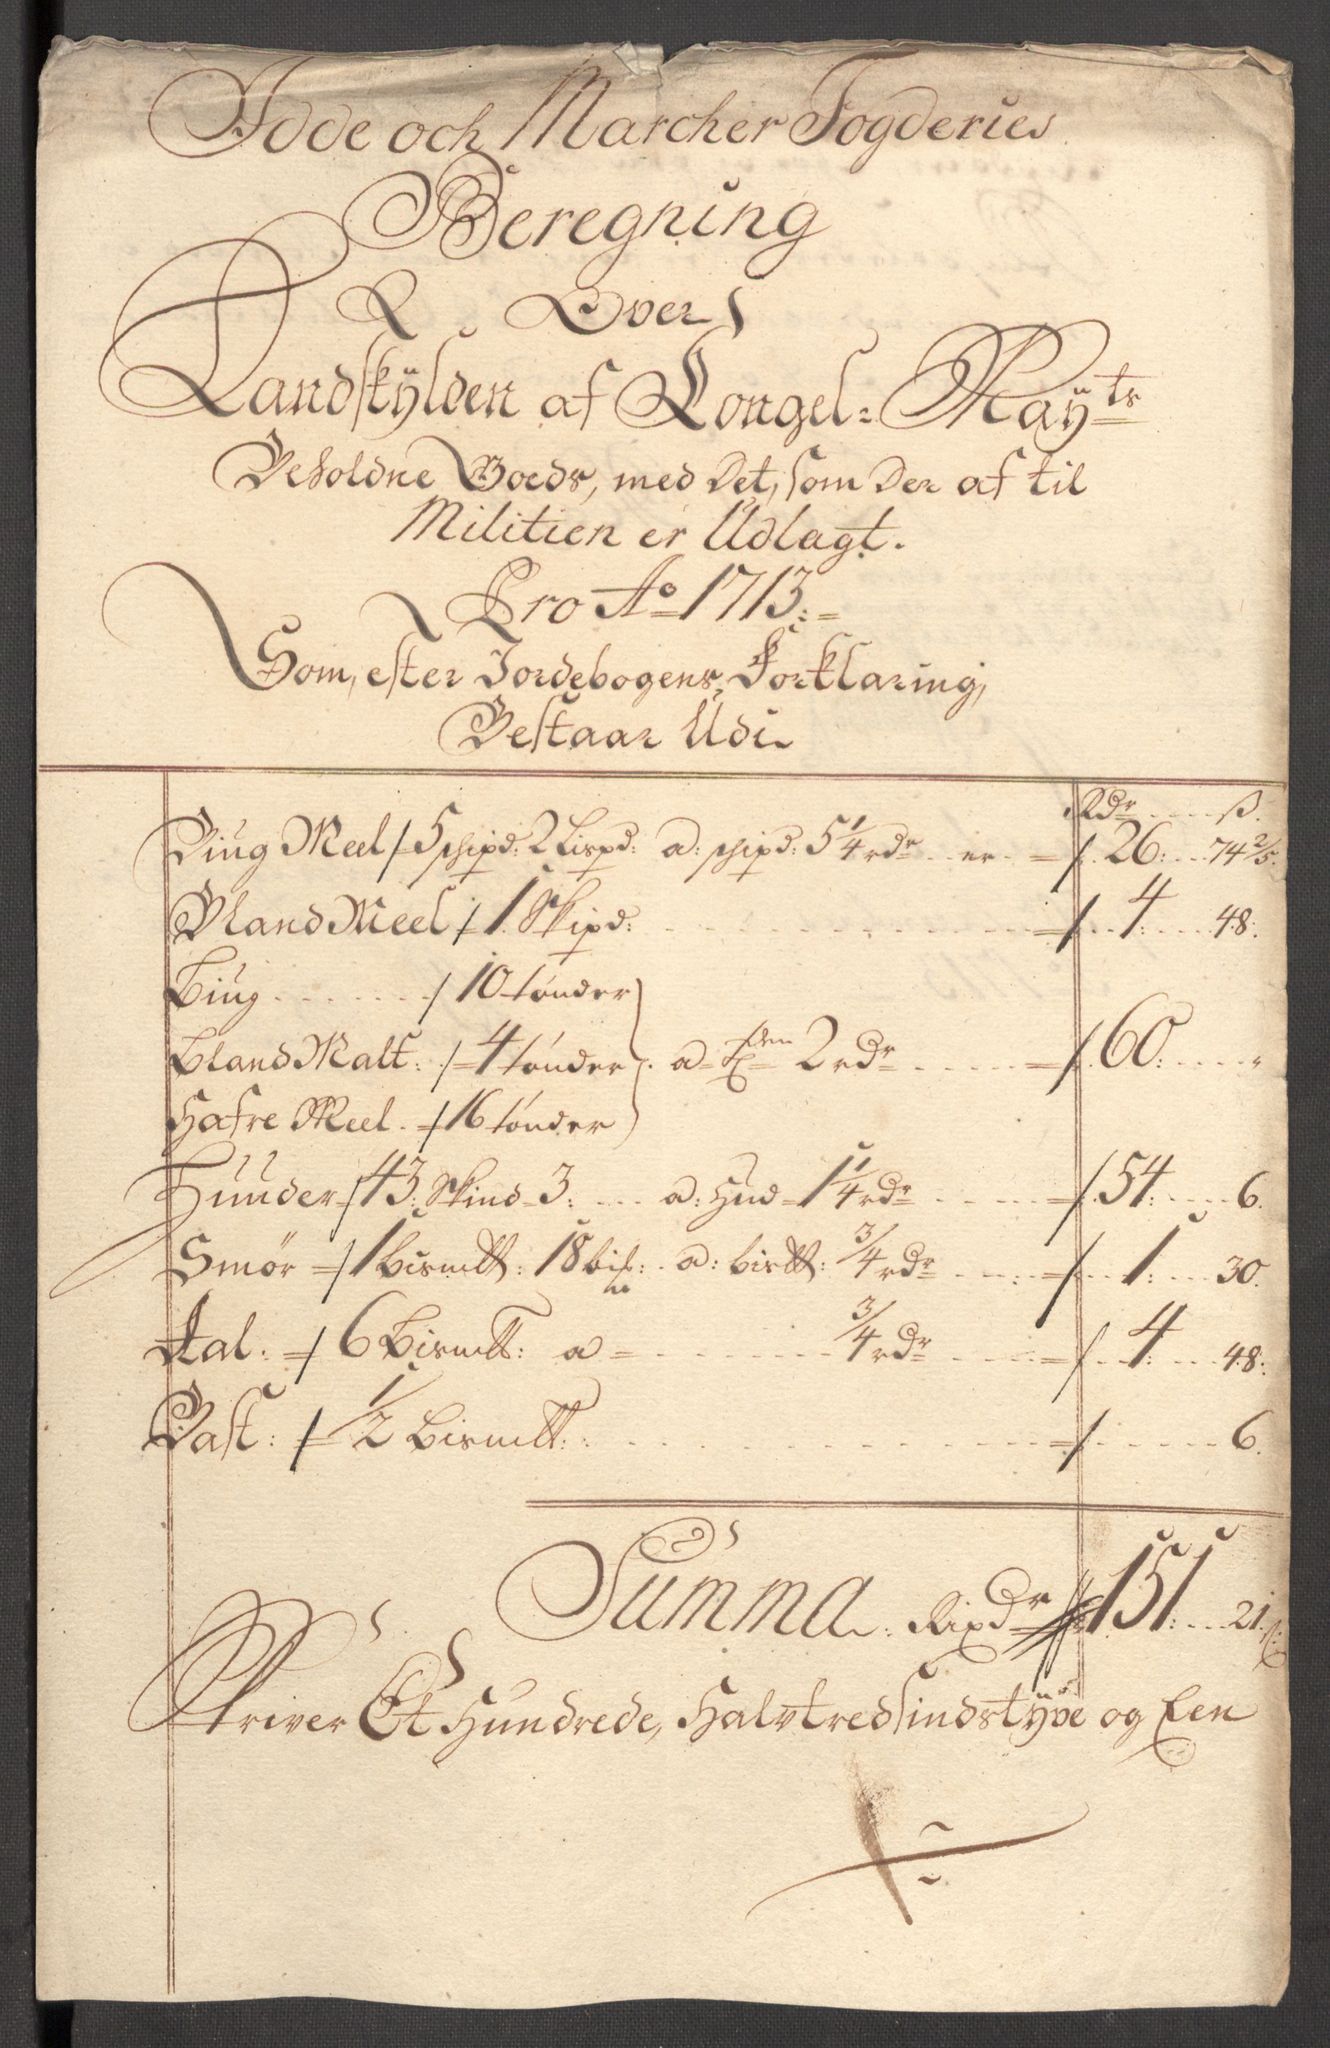 Idde och Marcher Fogderies
Beregning
Over
Landskÿlden af Kongel: Maÿts
Beholdne Goeds, med Det, som Der af til
Militien er Udlagt.
Pro Ao 1713:
Som, efter Jordebogens Forklaring,
Bestaar Udi
Rdr ß.
Biug Meel 5 schipd: 2 Lispd: a: schipd: 5 1/4 rdr er 26: 74 2/5:
Bland Meel 1 Skipd: 4: 48:
Biug 10 tønder
Bland Malt: 4 tønder a Tden 2 rdr 60:
Hafre Meel 16 tønder
Huuder 43: Skind 3: a: Hud 1 1/4 rdr 54: 6.
Smør 1 Bismtt: 18 a: bistt: 3/4 rdr 1: 30.
Aal: 6 Bismtt: a 3/4 rdr 4: 48:
Bast: 1/2 Bismtt: 6.
Summa Rixdr 151: 21 ß:
Skriver Et Hundrede, Halvtredsindstÿve og Een